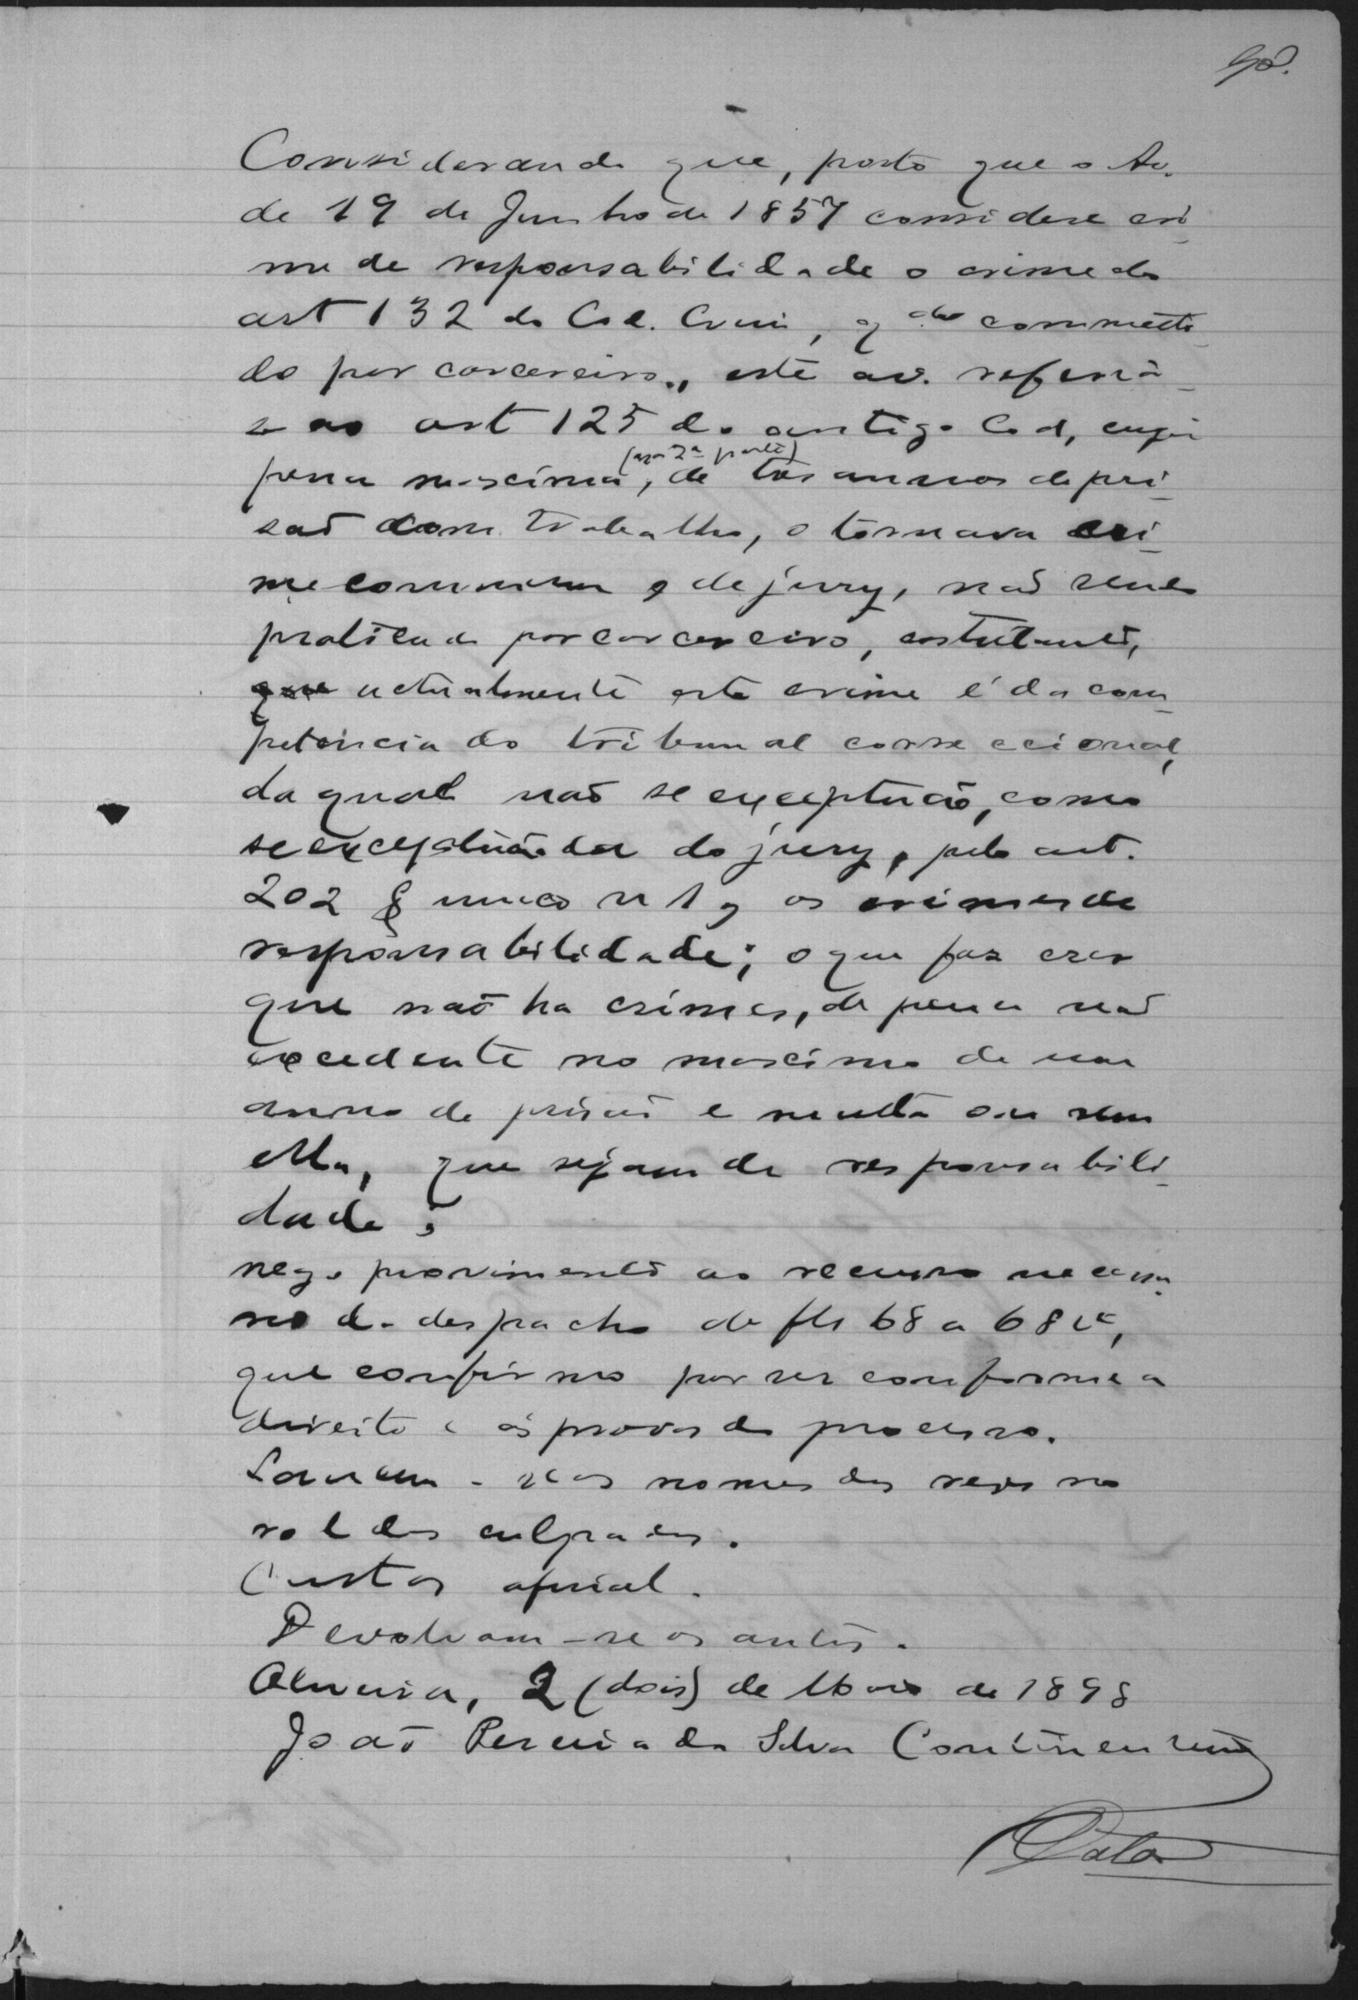 Considerando que, posto que o Av.
de 19 de Junho de 1857 considere cri
me de responsabilidade o crime do
art 132 do Cod. Crim, qdo commetti
do por carcereiro, este av. referia-
se ao art 125 do antigo Cod, cuja
pena maxima (na 2a parte), de tres annos de pri
saõ com trabalho, o tornava cri
me commum e de jury, naõ sendo
praticado por carcereiro, entretanto,
actualmente este crime é da com
petencia do tribunal correccional,
da qual naõ se exceptuaõ, como
se exceptuaõ da do jury, pelo art.
202 § unico n 1, os crimes de
responsabilidade; o que faz crer
que naõ ha crimes, de pena naõ
excedente no maximo de um
anno de prisaõ e multa ou sem
ella, que sejam de responsabili
dade;
nego provimento ao recurso necessa
rio do despacho de fls 68 a 68 v,
que confirmo por ser conforme a
direito e ás provas do processo.
Lancem-se os nomes dos reos no
rol dos culpados.
Custas afinal.
Devolvam-se os autos.
2 (dois) de Maio de 1898
Joaõ Pereira da Silva Continentino
Data